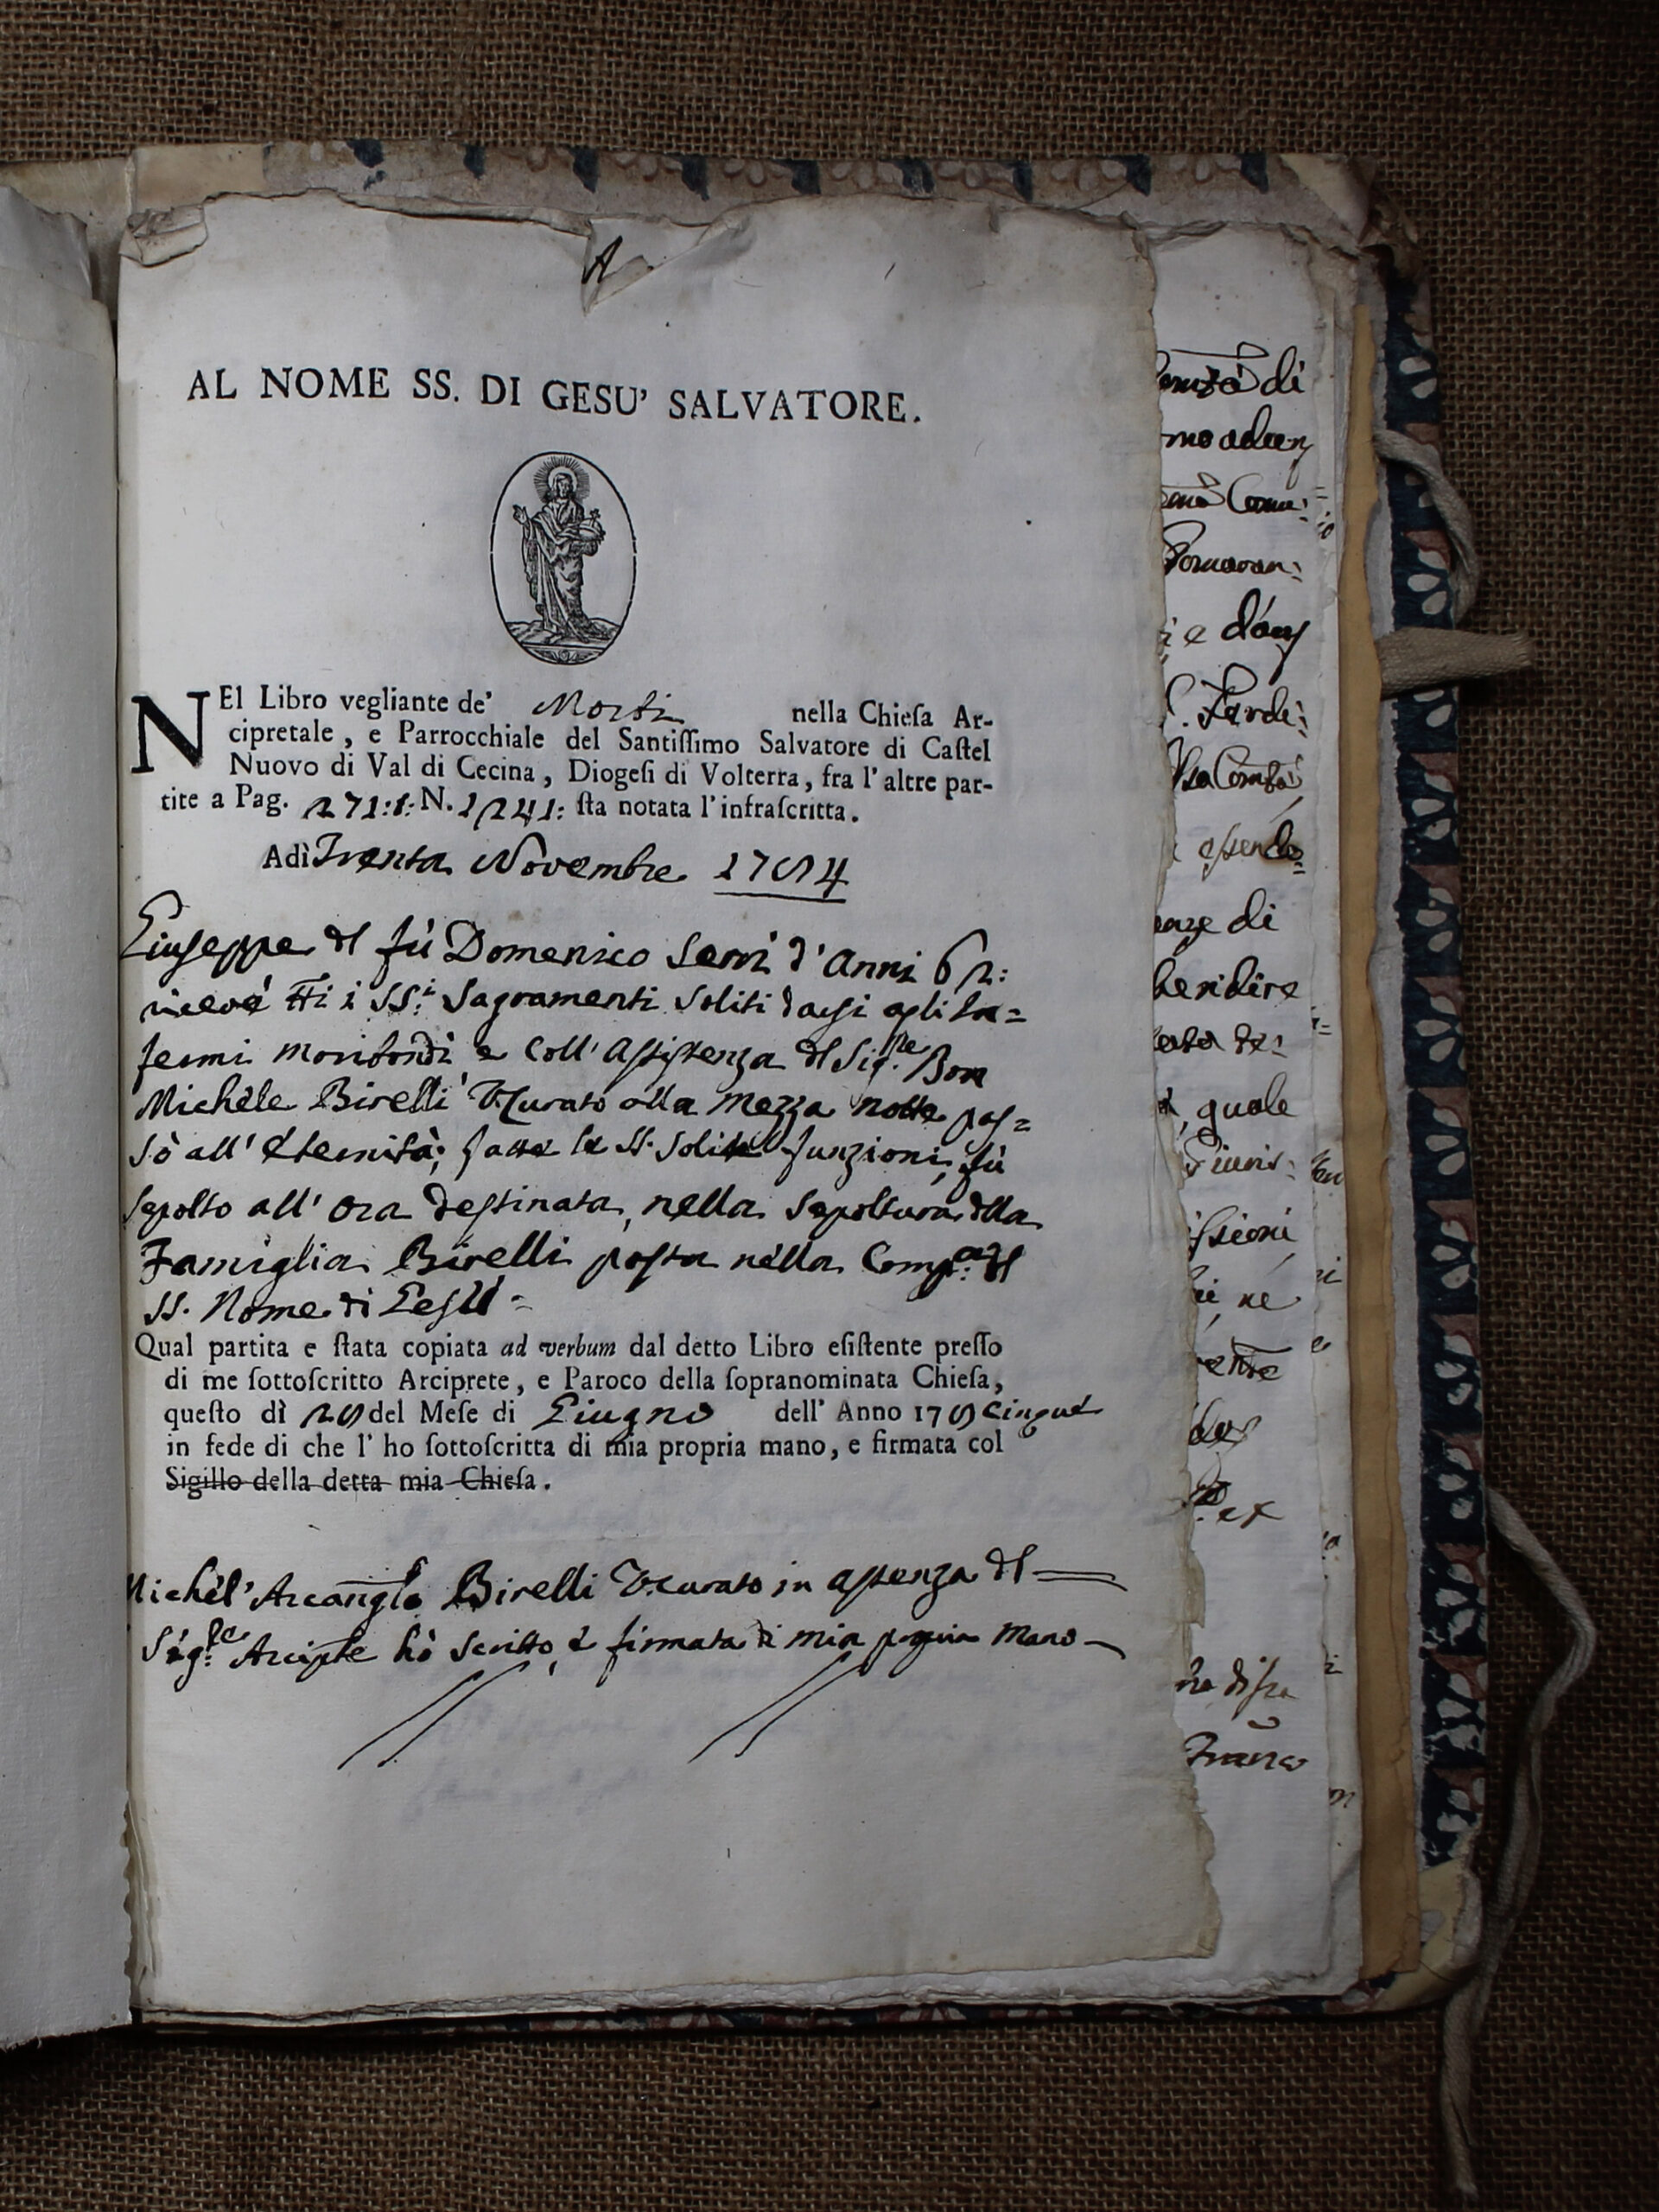 A
AL NOME SS. DI GESU' SALVATORE.
NEl Libro vegliante de' Morti nella Chieſa Ar-
cipretale, e Parrocchiale del Santiſſimo Salvatore di Caſtel
Nuovo di Val di Cecina, Diogeſi di Volterra, fra l'altre par-
tite a Pag. 271: N. ſta notata l'infraſcritta.
Adì Trenta Novembre
Giuseppe dl fù Domenico Serri d'Anni
riceve tti i SS.i Sagramenti soliti darsi agli In=
fermi moribondi e coll'Assistenza dl Sig.re Bon
Michele Birelli V.Curato alla mezza notte pas=
sò all'eternità; fatte le SS. solite funzioni, fù
sepolto all'ora destinata, nella sepoltura dlla
Famiglia Birelli posta nella Comp.a dl
SS. Nome di Gesù =
Qual partita e ſtata copiata ad verbum dal detto Libro eſiſtente preſſo
di me ſottoſcritto Arciprete, e Paroco della ſopranominata Chieſa,
queſto dì del Meſe di Giugno dell' Anno 17 Cinque
in fede di che l'ho ſottoſcritta di mia propria mano, e firmata col
Sigillo della detta mia Chieſa.
Michel'Arcanglo Birelli V.Curato in assenza dl
Sig.re Arciprte hò scritto, e firmata di mia propria mano
di
di
quale
ne